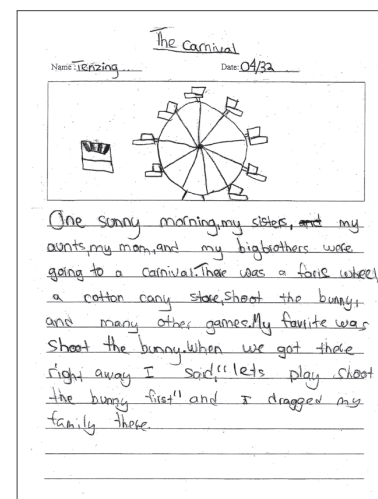 The Carnival
Name: Tenzing Date: 04/32
One sunny morning,my sisters, and my
aunts,my mom,and my bigbrothers were
going to a carnival.There was a faris wheel,
a cotton cany store,Shoot the bunny,
and many other games.My faviite was
Shoot the bunny.When we got there
right away I said,"lets play shoot
the bunny first" and I dragged my
family there.